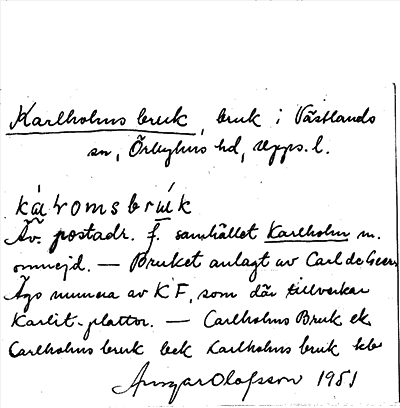 Karlholms bruk, bruk i Västlands
sn, Örbyhus hd, Upps. l.
ká̱ɽomsbrú̱k
Äv. postadr. f. samhället Karlholm m.
omnejd. — Bruket anlagt av Carl de Geer.
Ägs numera av KF, som där tillverkar
Karlit-plattor. — Carlholms Bruk ek
Carlholms bruk beck Karlholms bruk
Ansgar Olofsson 1951